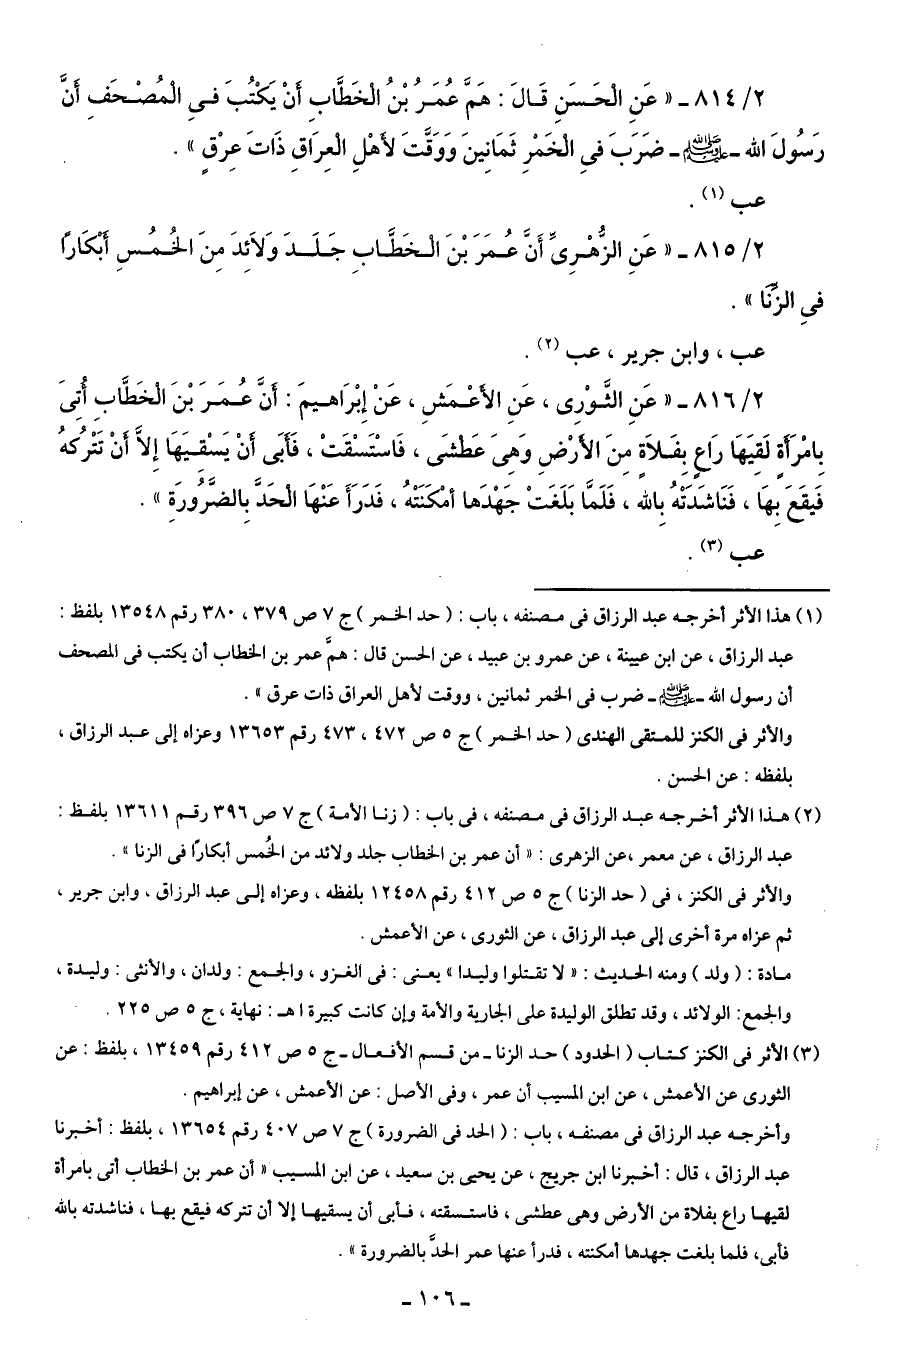 ٢/ ٨١٤ ـ « عَنِ الْحَسَنِ قَالَ : هَمَّ عُمَرُ بْنُ الْخَطَّابِ أَنْ يَكْتُبَ فِى الْمُصْحَفِ أَنَّ
رَسُولَ الله ـ ﷺ ـ ضَرَبَ فِى الْخَمْرِ ثَمَانِينَ وَوَقَّتَ لأَهْلِ الْعِرَاقِ ذَاتَ عِرْقٍ » .
عب (١) .
٢/ ٨١٥ ـ « عَنِ الزُّهْرِىِّ أَنَّ عُمَرَ بْنَ الْخَطَّابِ جَلَدَ وَلاَئِدَ مِنَ الْخُمُسِ أَبْكَارًا
فِى الزِّنَا » .
عب ، وابن جرير ، عب (٢) .
٢/ ٨١٦ ـ « عَنِ الثَّوْرِى ، عَنِ الأَعْمَشِ ، عَنْ إِبْرَاهِيمَ : أَنَّ عُمَرَ بْنَ الْخَطَّابِ أُتِىَ
بِامْرَأَةٍ لَقِيَهَا رَاعٍ بِفَلاَةٍ مِنَ الأَرْضِ وَهِىَ عَطْشَى ، فَاسْتَسْقَتْ ، فَأَبَى أَنْ يَسْقِيَهَا إِلاَّ أَنْ تَتْرُكَهُ
فَيَقَعَ بِهَا ، فَنَاشَدَتْهُ بِالله ، فَلَمَّا بَلَغَتْ جَهْدَهَا أَمْكَنَتْهُ ، فَدَرَأَ عَنْهَا الْحَدَّ بِالضَّرُورَةِ » .
عب (٣) .
(١) هذا الأثر أخرجه عبد الرزاق فى مصنفه ، باب : ( حد الخمر ) ج ٧ ص ٣٧٩ ، ٣٨٠ رقم ١٣٥٤٨ بلفظ :
عبد الرزاق ، عن ابن عيينة ، عن عمرو بن عبيد ، عن الحسن قال : همَّ عمر بن الخطاب أن يكتب فى المصحف
أن رسول الله ـ ﷺ ـ ضرب فى الخمر ثمانين ، ووقت لأهل العراق ذات عرق » .
والأثر فى الكنز للمتقى الهندى ( حد الخمر ) ج ٥ ص ٤٧٢ ، ٤٧٣ رقم ١٣٦٥٣ وعزاه إلى عبد الرزاق ،
بلفظه : عن الحسن .
(٢) هذا الأثر أخرجه عبد الرزاق فى مصنفه ، فى باب : ( زنا الأمة ) ج ٧ ص ٣٩٦ رقم ١٣٦١١ بلفظ :
عبد الرزاق ، عن معمر ،عن الزهرى : « أن عمر بن الخطاب جلد ولائد من الخُمس أبكارًا فى الزنا » .
والأثر فى الكنز ، فى ( حد الزنا ) ج ٥ ص ٤١٢ رقم ١٢٤٥٨ بلفظه ، وعزاه إلى عبد الرزاق ، وابن جرير ،
ثم عزاه مرة أخرى إلى عبد الرزاق ، عن الثورى ، عن الأعمش .
مادة : ( ولد ) ومنه الحديث : « لا تقتلوا وليدا » يعنى : فى الغزو ، والجمع : ولدان ، والأنثى : وليدة ،
والجمع: الولائد ، وقد تطلق الوليدة على الجارية والأمة وإن كانت كبيرة ا هـ : نهاية ، ج ٥ ص ٢٢٥ .
(٣) الأثر فى الكنز كتاب ( الحدود ) حد الزنا ـ من قسم الأفعال ـ ج ٥ ص ٤١٢ رقم ١٣٤٥٩ ، بلفظ : عن
الثورى عن الأعمش ، عن ابن المسيب أن عمر ، وفى الأصل : عن الأعمش ، عن إبراهيم .
وأخرجه عبد الرزاق فى مصنفه ، باب : ( الحد فى الضرورة ) ج ٧ ص ٤٠٧ رقم ١٣٦٥٤ ، بلفظ : أخبرنا
عبد الرزاق ، قال : أخبرنا ابن جريج ، عن يحيى بن سعيد ، عن ابن المسيب « أن عمر بن الخطاب أتى بامرأة
لقيها راع بفلاة من الأرض وهى عطشى ، فاستسقته ، فأبى أن يسقيها إلا أن تتركه فيقع بها ، فناشدته بالله
فأبى، فلما بلغت جهدها أمكنته ، فدرأ عنها عمر الحدَّ بالضرورة » .
ـ ١٠٦ ـ